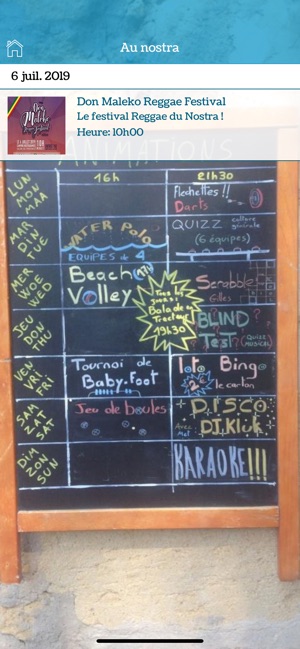 Au nostra
6 juil. 2019
Don Maleko Reggae Festival
Le festival Reggae du Nostra !
Heure: 10h00
Don
Maleko
ANIMATIONS
16h
21h30
LUN
MON
MAA
Flechettes !!
Darts
MAR
DIN
TUE
WATER Polo
EQUIPES de 4
QUIZZ culture
générale
(6 équipes)
MER
WOE
WED
Beach
Volley
Scrabble
Gilles
Tous les
jours:
Balade en
Tracteur
19h30
JEU
DON
THU
BLIND
TEST
(Quizz
MUSICAL)
VEN
VRI
FRI
Tournoi de
Baby-foot
loto Bingo
2€ le carton
SAM
ZAT
SAT
Jeu de boules
DISCO
Avec DJ.Klik
DIM
ZON
SUN
KARAOKE!!!